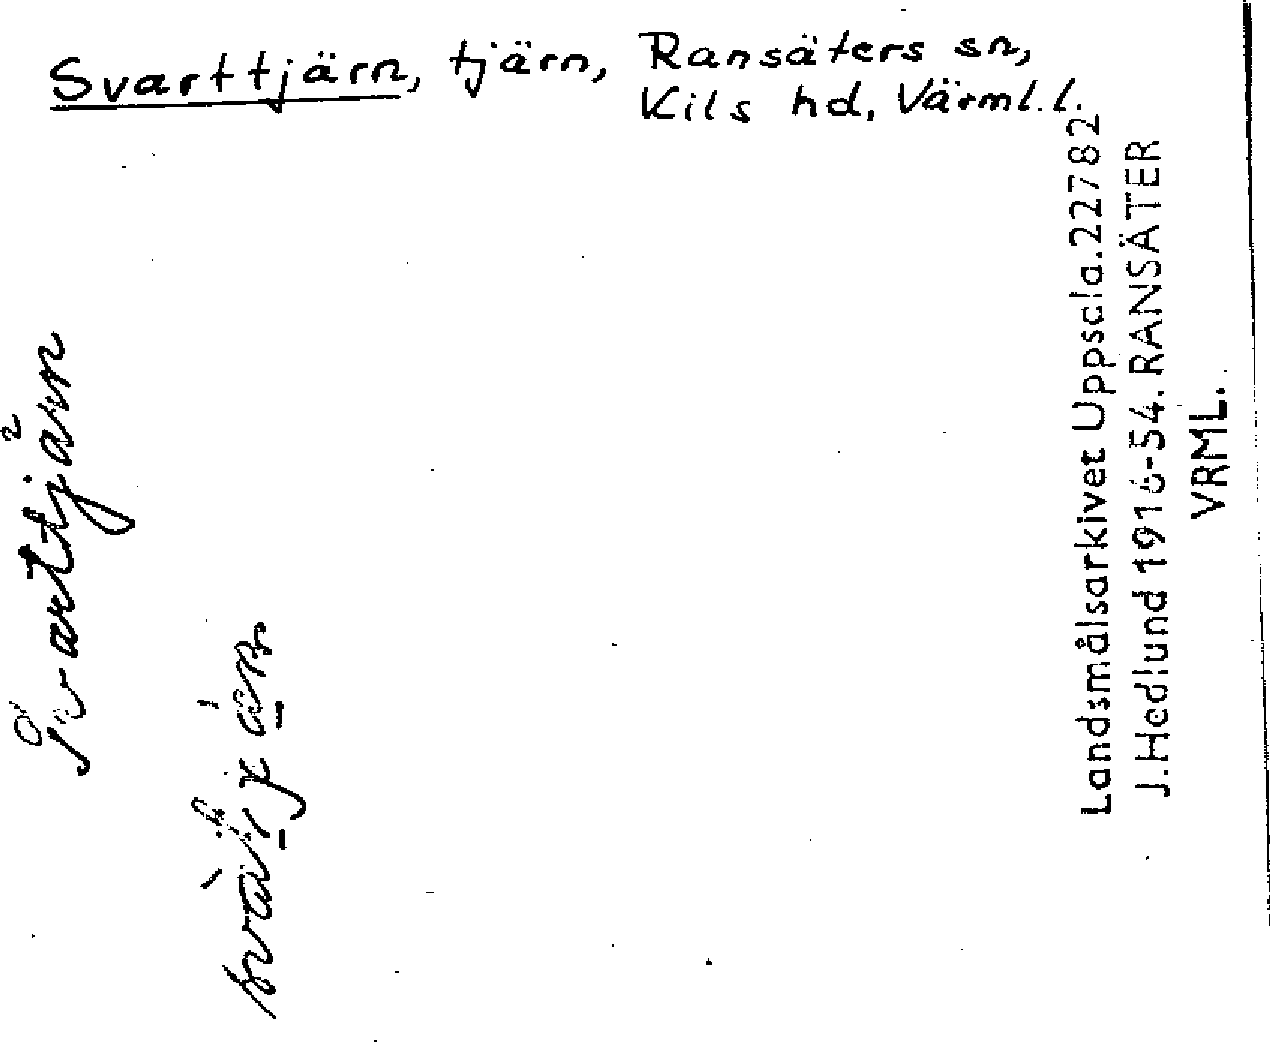 Svarttjärn, tjärn, Ransäters sn,
Kils hd, Värml. l.
Svarttjärn
Landsmålsarkivet Uppsala. 22782
J. Hedlund 1916-54. RANSÄTER
VRML.